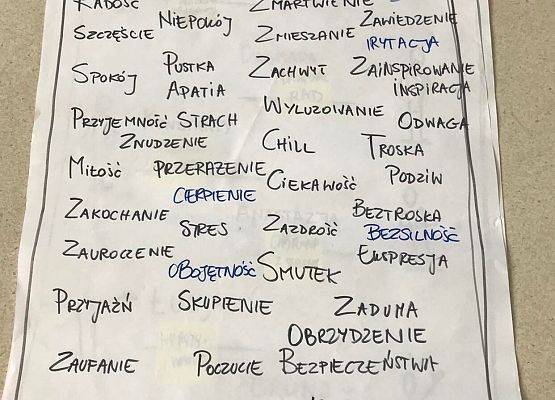 RADOŚĆ ZMARTWIENIE
SZCZĘŚCIE NIEPOKÓJ ZMIESZANIE ZAWIEDZENIE
IRYTACJA
SPOKÓJ PUSTKA ZACHWYT ZAINSPIROWANIE
APATIA INSPIRACJA
WYLUZOWANIE
PRZYJEMNOŚĆ STRACH ODWAGA
ZNUDZENIE CHILL TROSKA
MIŁOŚĆ PRZERAŻENIE PODZIW
CIERPIENIE CIEKAWOŚĆ
ZAKOCHANIE BEZTROSKA
STRES ZAZDROŚĆ BEZSILNOŚĆ
ZAUROCZENIE EKSPRESJA
OBOJĘTNOŚĆ SMUTEK
PRZYJAŹŃ SKUPIENIE ZADUMA
OBRZYDZENIE
ZAUFANIE POCZUCIE BEZPIECZEŃSTWA